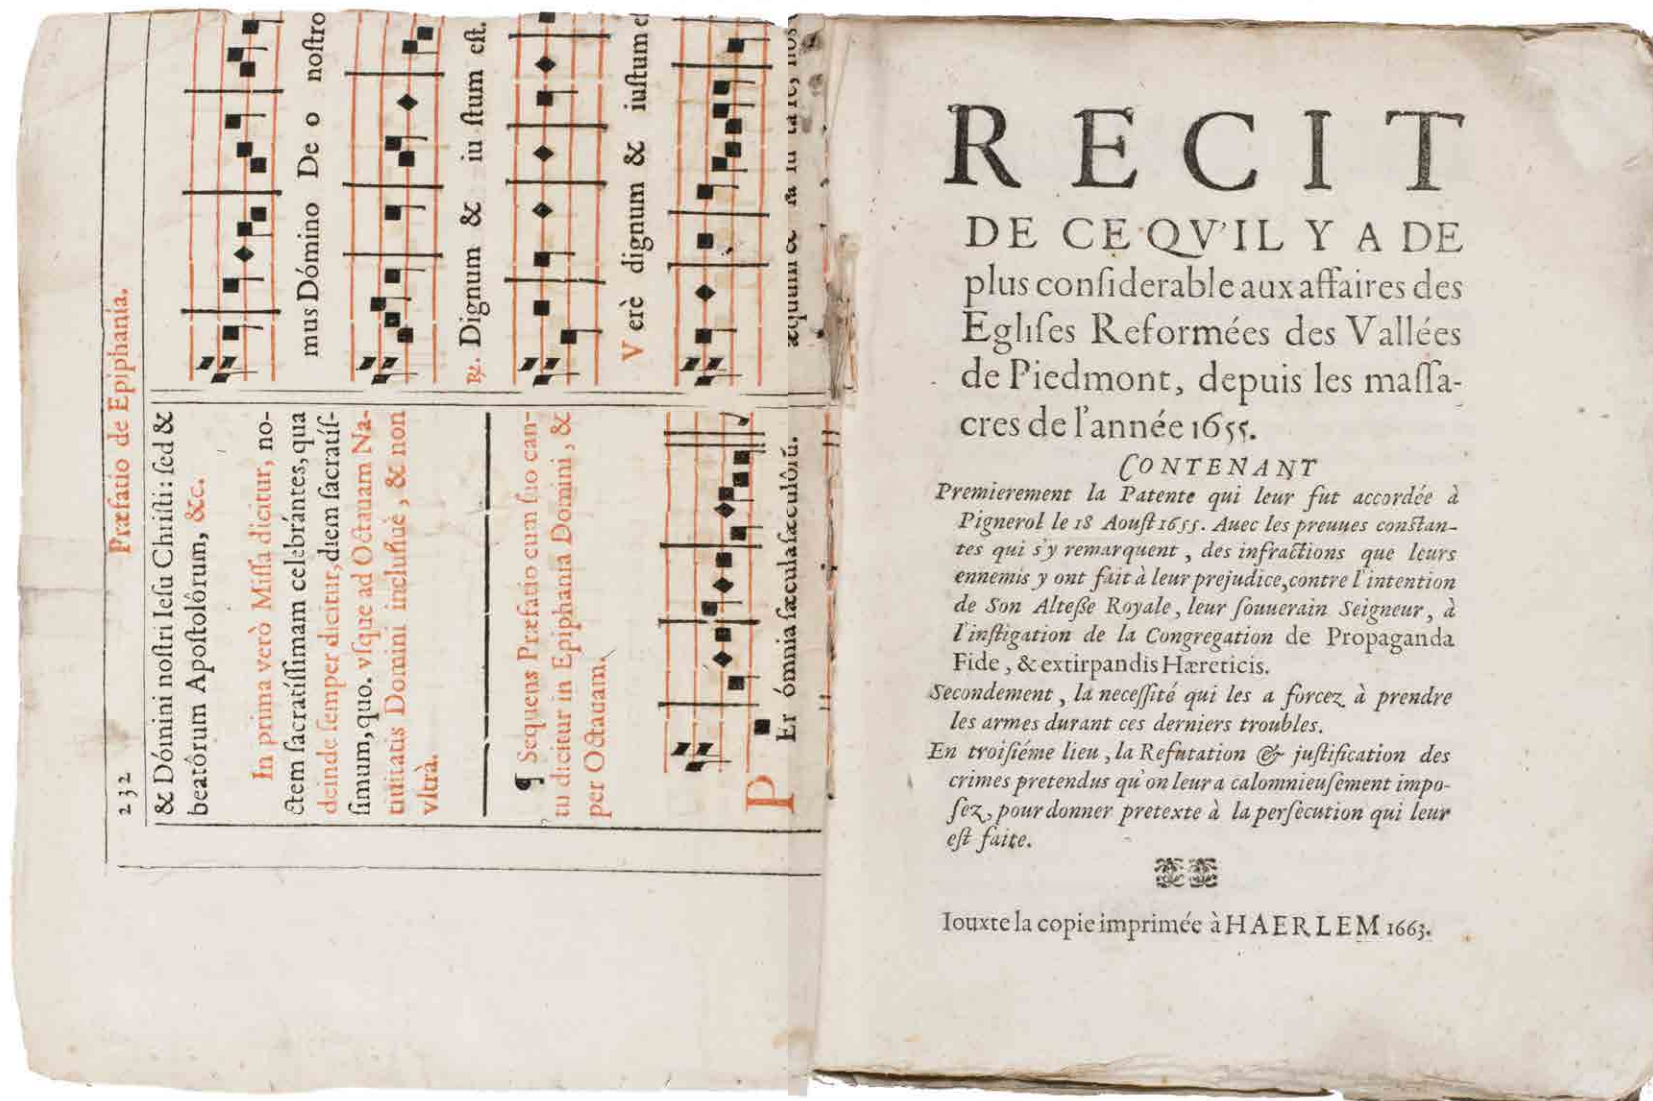 232 Præfatio de Epiphania.
& Dómini noſtri Ieſu Chriſti: ſed &
beatórum Apoſtolórum, &c.
In prima verò Miſſa dicitur, no-
ctem ſacratíſſimam celebrántes, qua
deinde ſemper dicitur, diem ſacratíſ-
ſimum, quo. vſque ad Octauam Na-
tiuitatis Domini incluſiuè, & non
vltrà.
¶ Sequens Præfatio cum ſuo can-
tu dicitur in Epiphania Domini, &
per Octauam.
PEr ómnia ſæcula ſæculórũ.
mus Dómino De o noſtro
℟. Dignum & iu ſtum eſt.
Verè dignum & iuſtum
æquum &
RECIT
DE CE QV'IL Y A DE
plus conſiderable aux affaires des
Egliſes Reformées des Vallées
de Piedmont, depuis les maſſa-
cres de l'année 1655.
CONTENANT
Premierement la Patente qui leur fut accordée à
Pignerol le 18 Aouſt 1655. Auec les preuues conſtan-
tes qui s'y remarquent, des infractions que leurs
ennemis y ont fait à leur prejudice, contre l'intention
de Son Alteſſe Royale, leur ſouuerain Seigneur, à
l'inſtigation de la Congregation de Propaganda
Fide, & extirpandis Hæreticis.
Secondement, la neceſſité qui les a forcez à prendre
les armes durant ces derniers troubles.
En troiſiéme lieu, la Refutation & juſtification des
crimes pretendus qu'on leur a calomnieuſement impo-
ſez, pour donner pretexte à la perſecution qui leur
eſt faite.
Iouxte la copie imprimée à HAERLEM 1663.